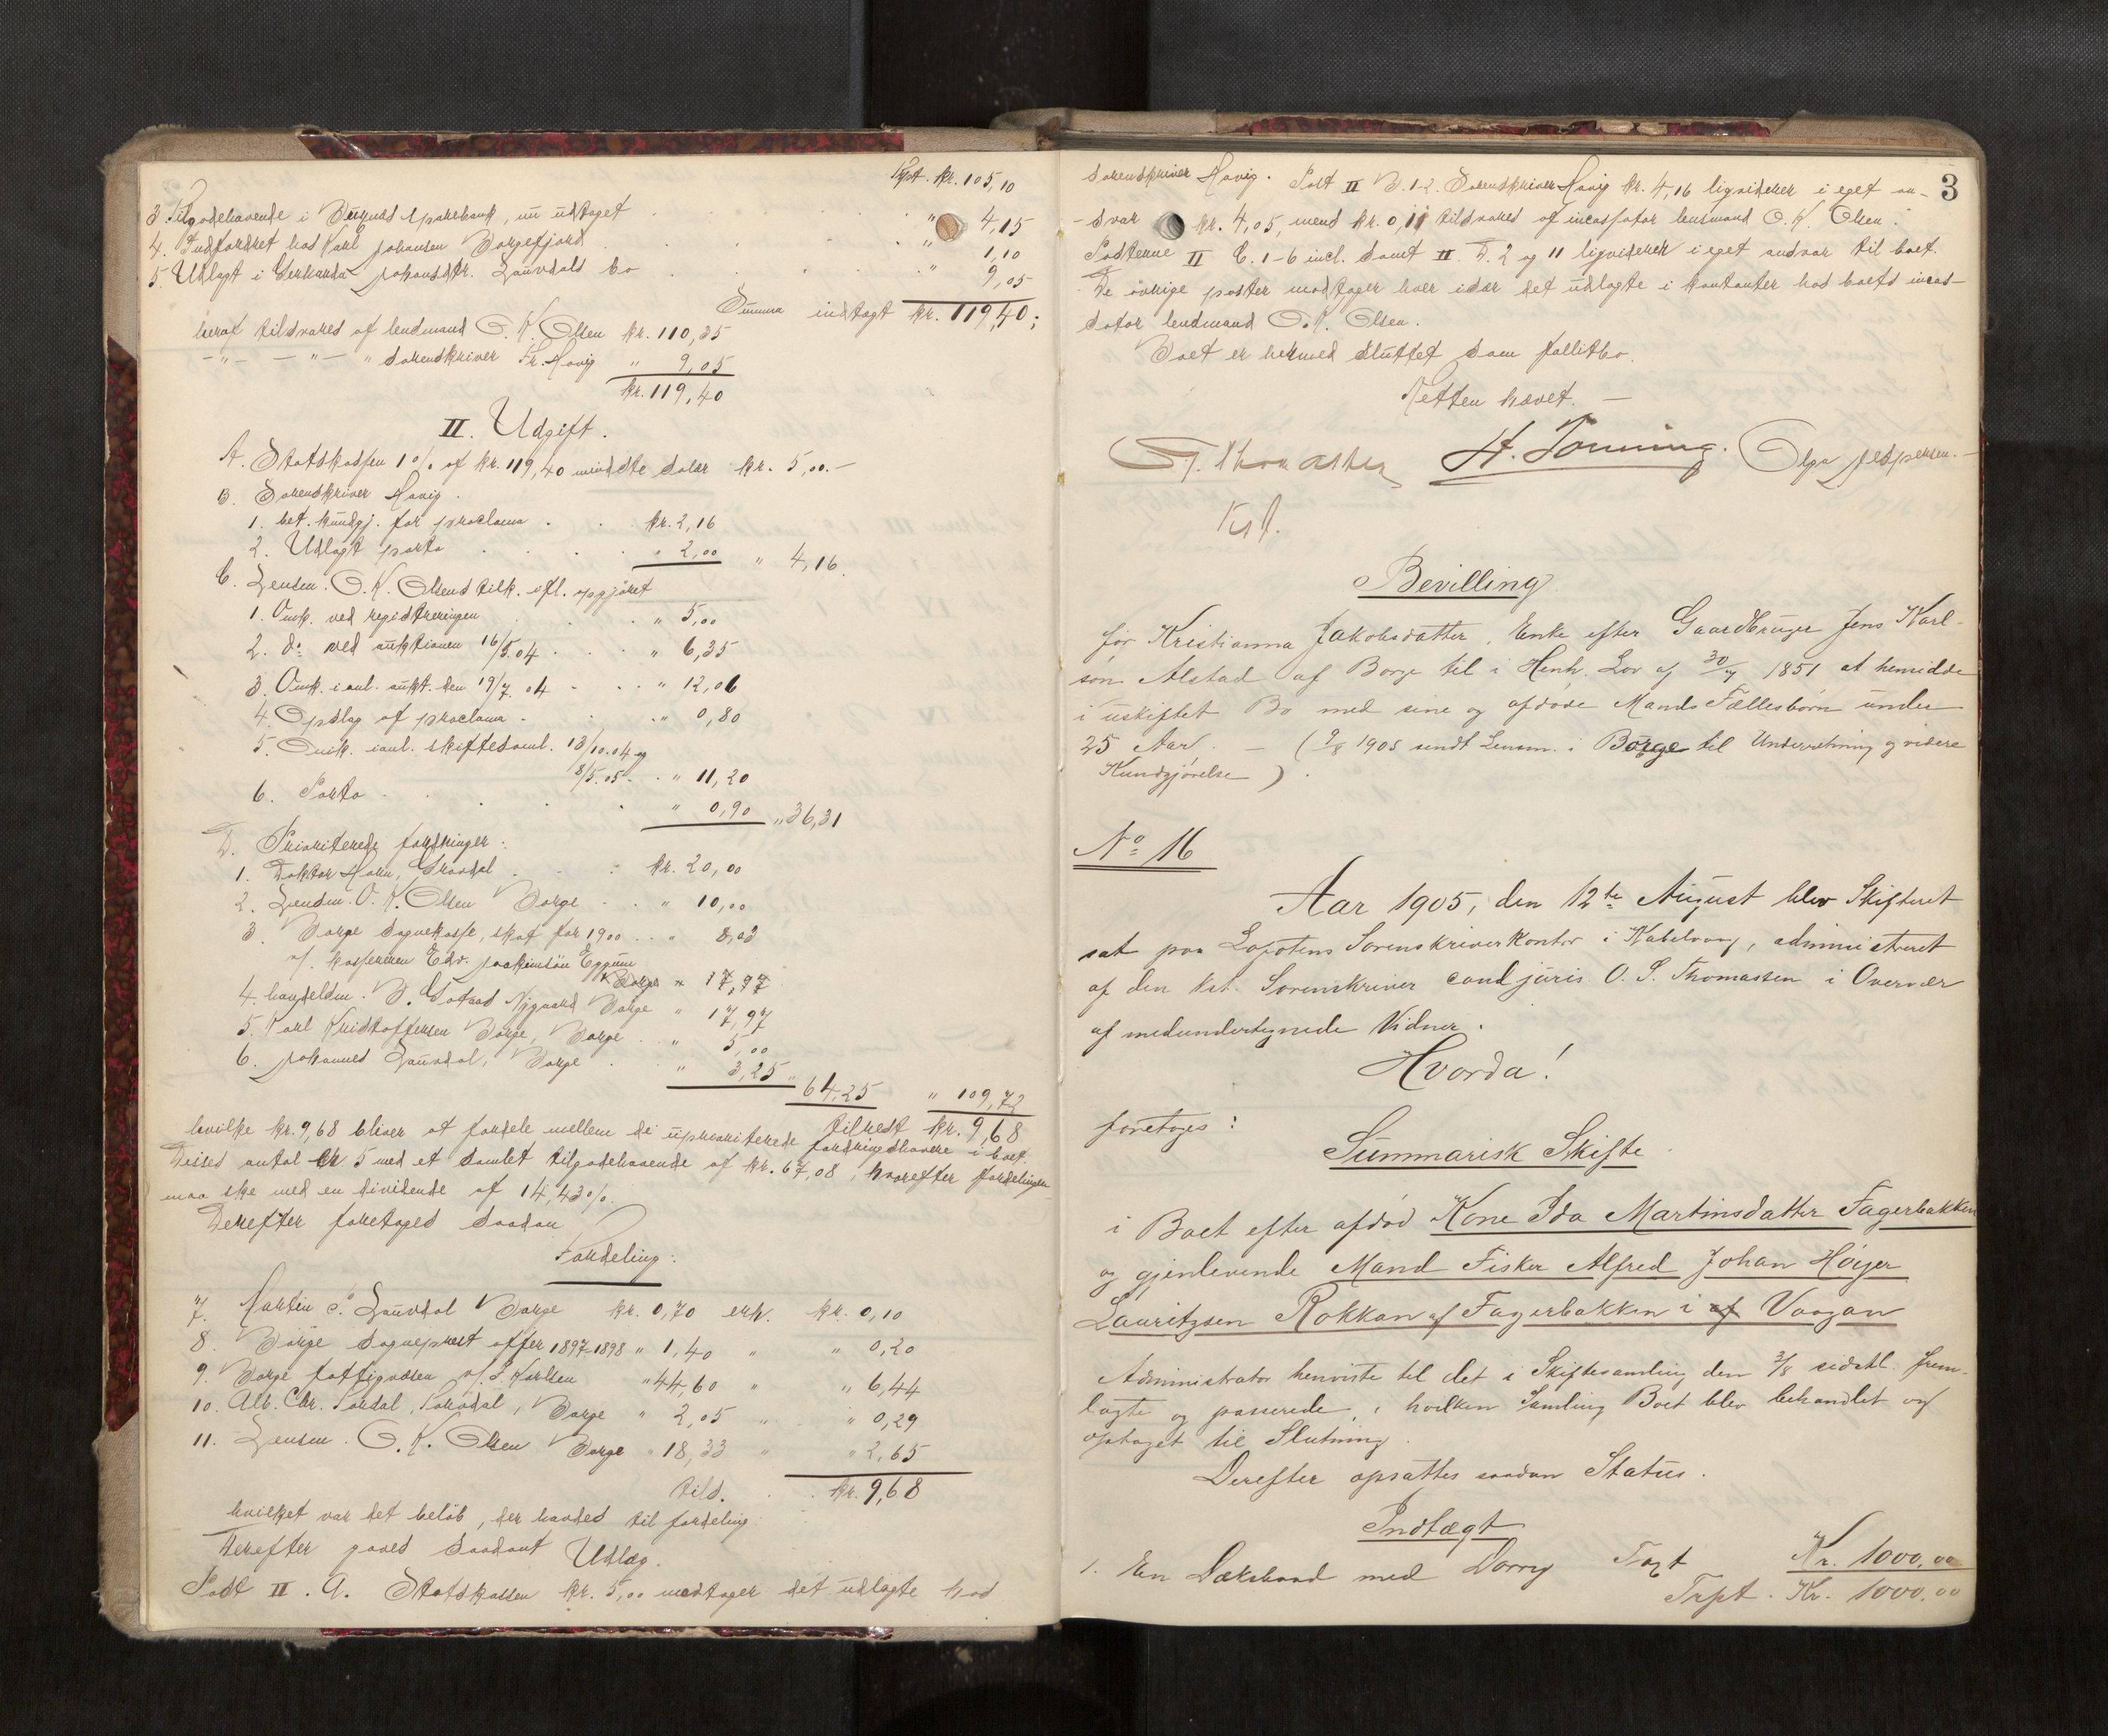 Trpt. kr. 105,10
3. Tilgodehavende i Buknes sparebank, nu udtaget " 4,15
4. Indfordret hos Karl Johansen Borgefjord " 1,10
5. Udlagt i Gerharda Johansdtr. Lauvdals bo " 9,05
Summa indtægt kr. 119,40;
heraf tilsvares af lensmand O. K. Olsen kr. 110,35
-"- -"- " sorenskriver Fr. Havig " 9,05
kr. 119,40
II. Udgift.
A. Statskassen 1 % af kr. 119,40 mindste salær kr. 5,00.-
B. Sorenskriver Havig.
1. bet. kundgj. for proclama kr. 2,16
2. Udlagt porto " 2,00 " 4,16.
C. Lensm. O. K. Olsens tilk. ifl. opgjöret
1. Omk. ved registreringen " 5,00
2. do ved auktionen 16/5.04 " 6,35
3. Omk. i anl. aukt. den 19/7.04 " 12,06
4. Opslag af proclama " 0,80
5. Omk. i anl. skiftesaml. 13/10.04 og
8/5.05 " 11,20
6. Porto " 0,90 " 36,31
D. Prioriterede fordringer:
1. Doktor Horn, Gravdal kr. 20,00
2. Lensm. O. K. Olsen Borge " 10,00
3. Borge sognekasse, skat for 1900 " 8,03
v/ kasserer Edv. Joakimsön Eggum
Borge " 17,97
4. handelsm. B. Nygaard Borge " 17,97
5. Karl Kristoffersen Borge, Borge " 5,00
6. Johannes Lauvdal, Borge " 3,25 " 64,25 " 109,72
tilrest kr. 9,68
hvilke kr. 9,68 bliver at fordele mellem de uprioriterede fordringshavere i boet.
Disses antal er 5 med et samlet tilgodehavende af kr. 67,08, hvorefter fordelingen
maa ske med en dividende af 14,43 %.
Derefter foretages saadan
Fordeling:
7. Martin Lauvdal Borge kr. 0,70 erh. kr. 0,10
8. Borge sogneprest offer 1897-1898 " 1,40 " " 0,20
9. Borge fattigvæsen v/ Karlsen " 44,60 " " 6,44
10. Alb. Chr. Sördal, Sördal, Borge " 2,05 " " 0,29
11. Lensm. O. K. Olsen Borge " 18,33 " " 2,65
tils. kr. 9,68
hvilket var det beløb, der havdes til fordeling.
Derefter gaves saadant Udlæg.
Post II. A. Statskassen kr. 5,00 modtager det udlagte hos
3
sorenskriver Havig. Post II B. 1-2. Sorenskriver Havig kr. 4,16 ligviderer i eget an-
-svar kr. 4,05, mens kr. 0,11 tilsvares af incassator lensmand O. K. Olsen.
Posterne II C. 1-6 incl. samt II D. 2 og 11 ligviderer i eget ansvar til boet.
De övrige poster modtager hver især det udlagte i kontanter hos boets incas-
sator lensmand O. K. Olsen.
Boet er hermed sluttet som fallitbo.
Retten hævet. —
O. S. Thomassen H. Tonning. Olga Jespersen.
Kst.
Bevilling
for Kristianna Jakobsdatter, Enke efter Gaardbruger Jens Karl-
sön Alstad af Borge til i Henh. Lov af 30/7 1851 at hensidde
i uskiftet Bo med sine og afdöde Mands Fællesbörn under
25 Aar. — (9/8 1905 sendt Lensm. i Borge til Underretning og videre
Kundgjörelse).
No 16
Aar 1905, den 12te August blev Skifteret
sat paa Lofotens Sorenskriverkontor i Kabelvaag, administreret
af den kst. Sorenskriver cand juris O. S. Thomassen i Overvær
af medundertegnede Vidner.
Hvorda!
foretoges:
Summarisk Skifte
i Boet efter afdöd Kone Ida Martinsdatter Fagerbakken
og gjenlevende Mand Fisker Alfred Johan Höijer
Lauritzsen Rokkan af Fagerbakken i af Vaagan
Administrator henviste til det i Skiftesamling den 3/8 sidstl. frem-
lagte og passerede, i hvilken Samling Boet blev behandlet og
optaget til Slutning.
Derefter opsattes saadan Status.
Indtægt
1. En Dæksbaad med Dorry Taxt Kr. 1000,00
Trpt. Kr. 1000,00